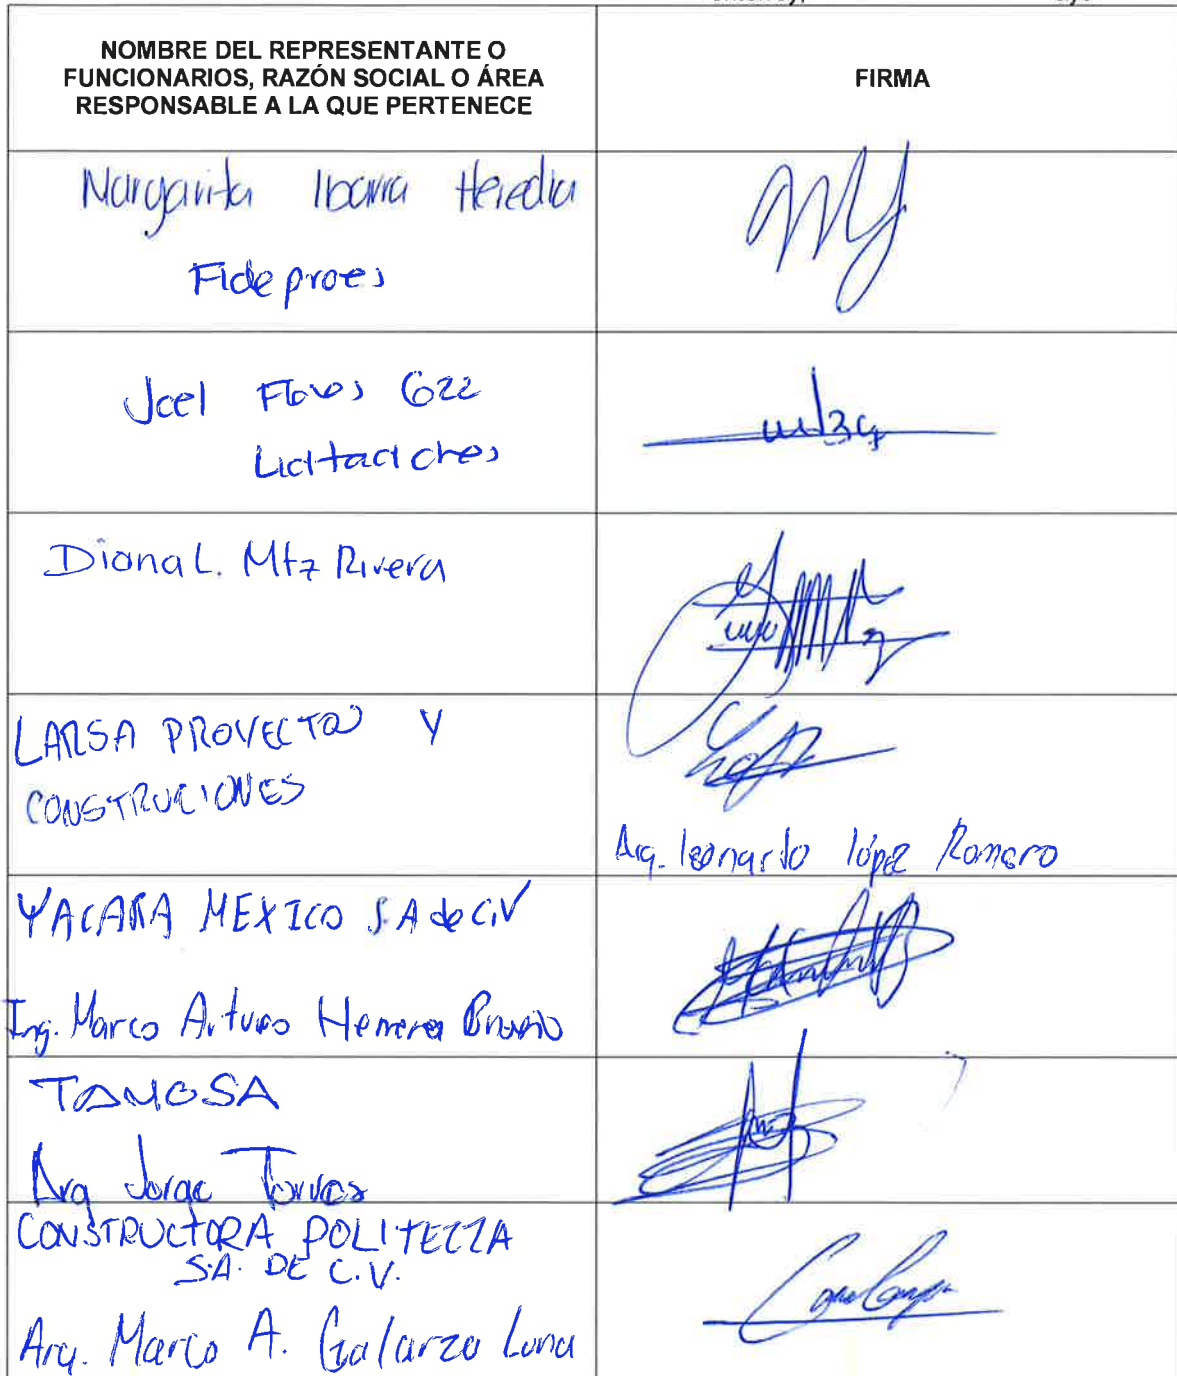 NOMBRE DEL REPRESENTANTE O
FUNCIONARIOS, RAZÓN SOCIAL O ÁREA
RESPONSABLE A LA QUE PERTENECE
FIRMA
Margarita Ibarra Heredia
Fideproes
Joel Flores
Licitaciones
Diana L. Mtz Rivera
LARSA PROYECTOS Y
CONSTRUCIONES
Arq. leonardo lópez Romero
YACARA MEXICO S.A de C.V
Ing. Marco Arturo Herrera
TAMOSA
Arq Jorge Torres
CONSTRUCTORA POLITEZZA
S.A. DE C.V.
Arq. Marco A. Galarza Luna